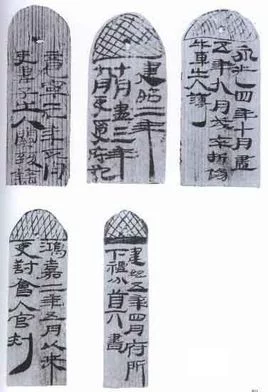 永光四年十月盡
五年八月戍卒折傷
牛車出入簿
建昭二年
十月盡三年
九月吏受府記
二年五月
吏妻子出入關致籍
建始五年四月府所
下禮分書
鴻嘉二年五月以來
吏對會入官刺